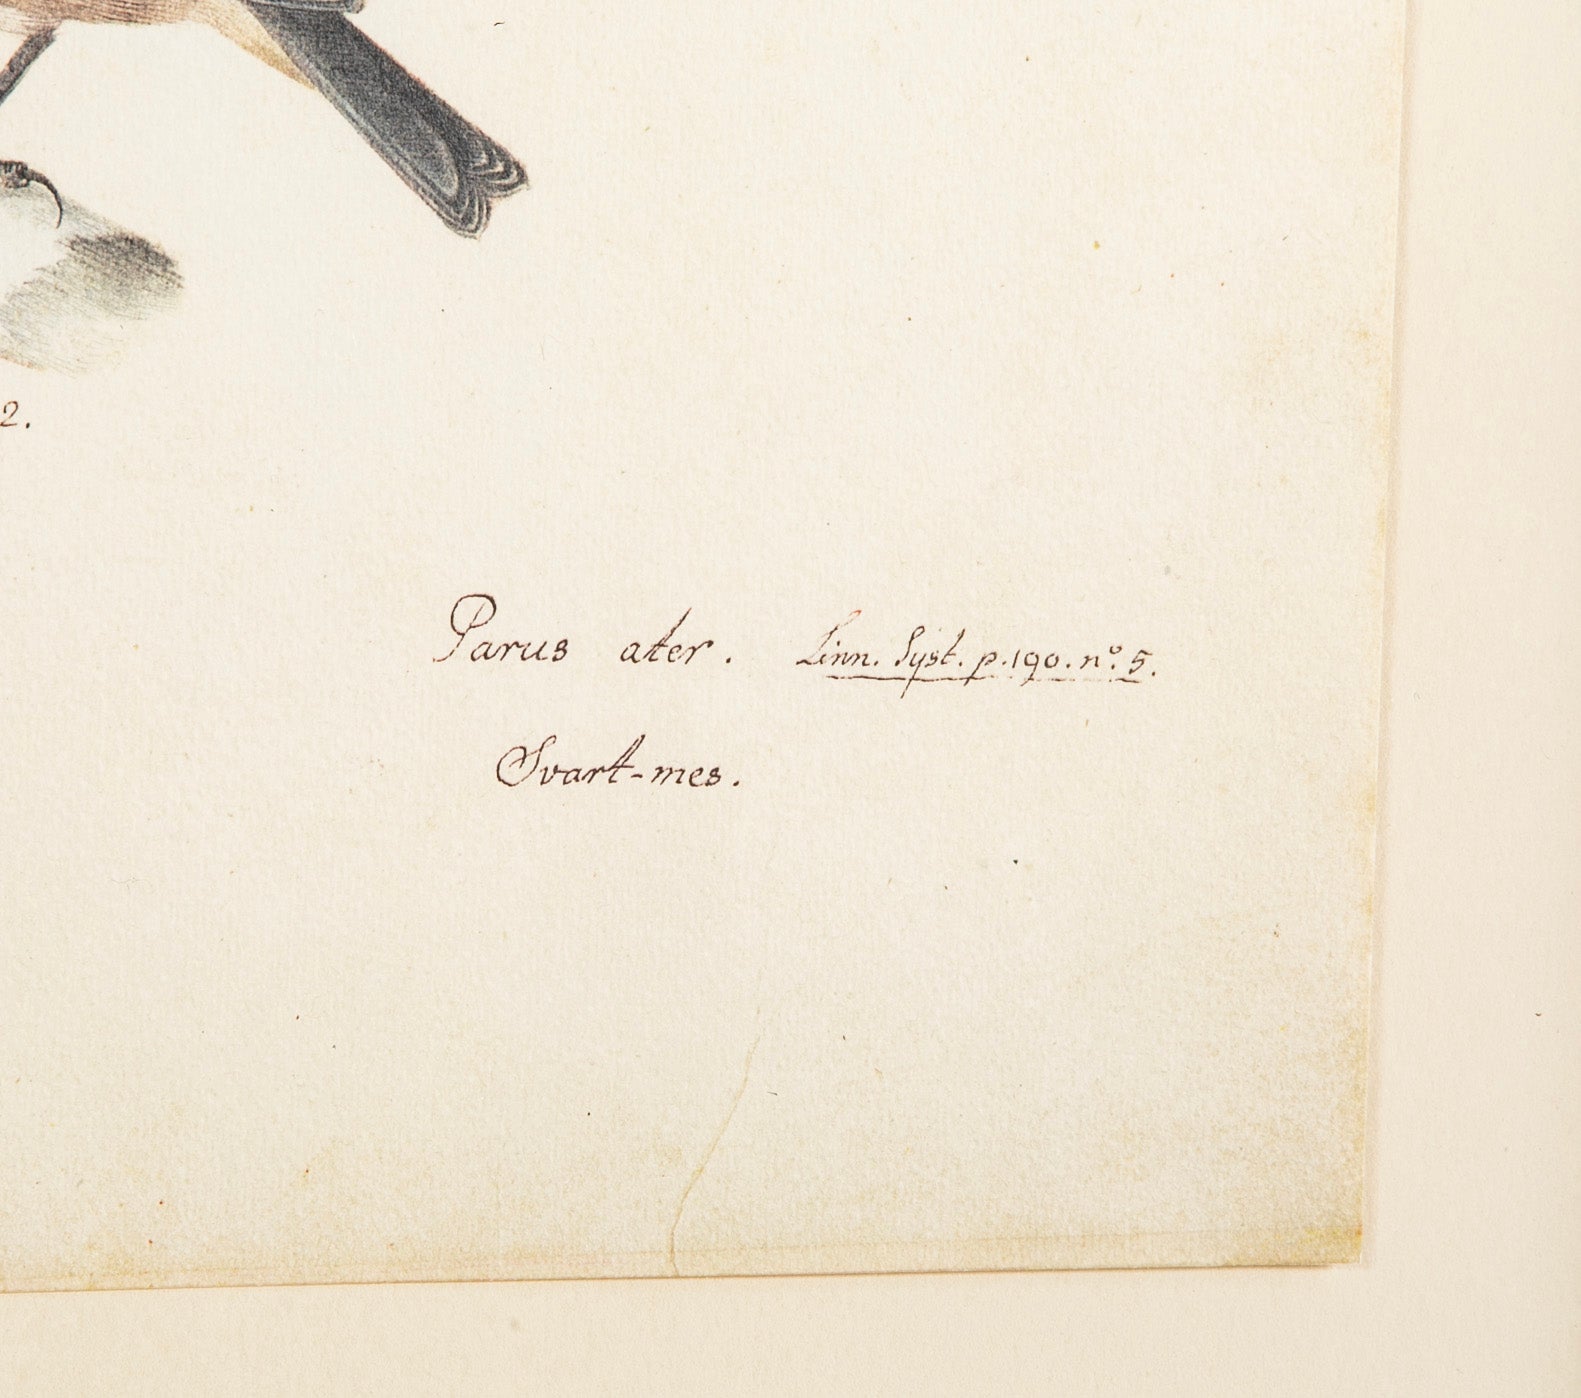 2.
Parus ater. Linn. Syst. p. 190. nº. 5.
Svart-mes.